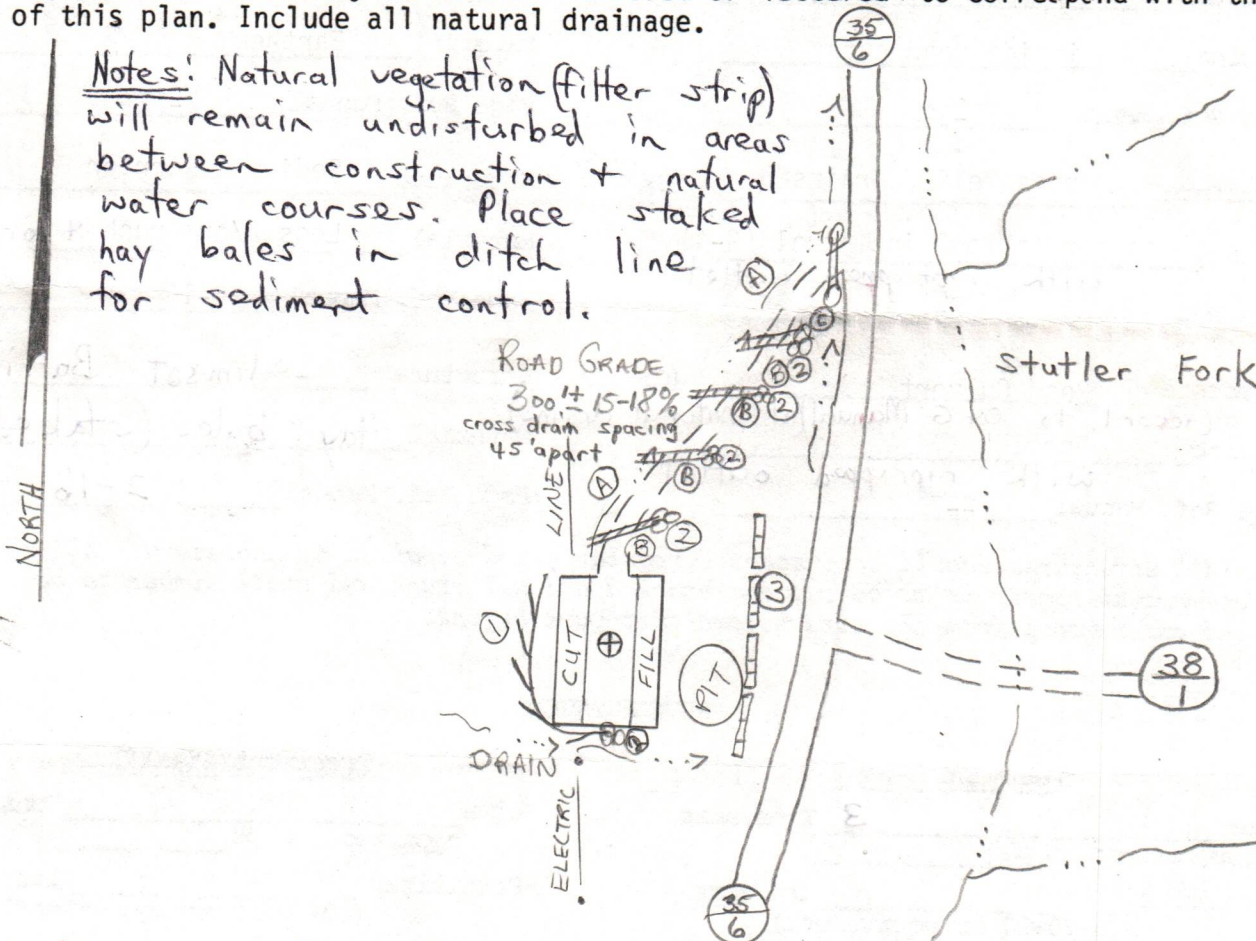 of this plan. Include all natural drainage.
Notes: Natural vegetation (filter strip)
will remain undisturbed in areas
between construction + natural
water courses. Place staked
hay bales in ditch line
for sediment control.
35
6
A
C
ROAD GRADE
300'± 15-18%
cross drain spacing
45' apart
B 2
B 2
B 2
B 2
A
Stutler Fork
LINE
NORTH
1
CUT
FILL
PIT
3
38
1
DRAIN
ELECTRIC
35
6